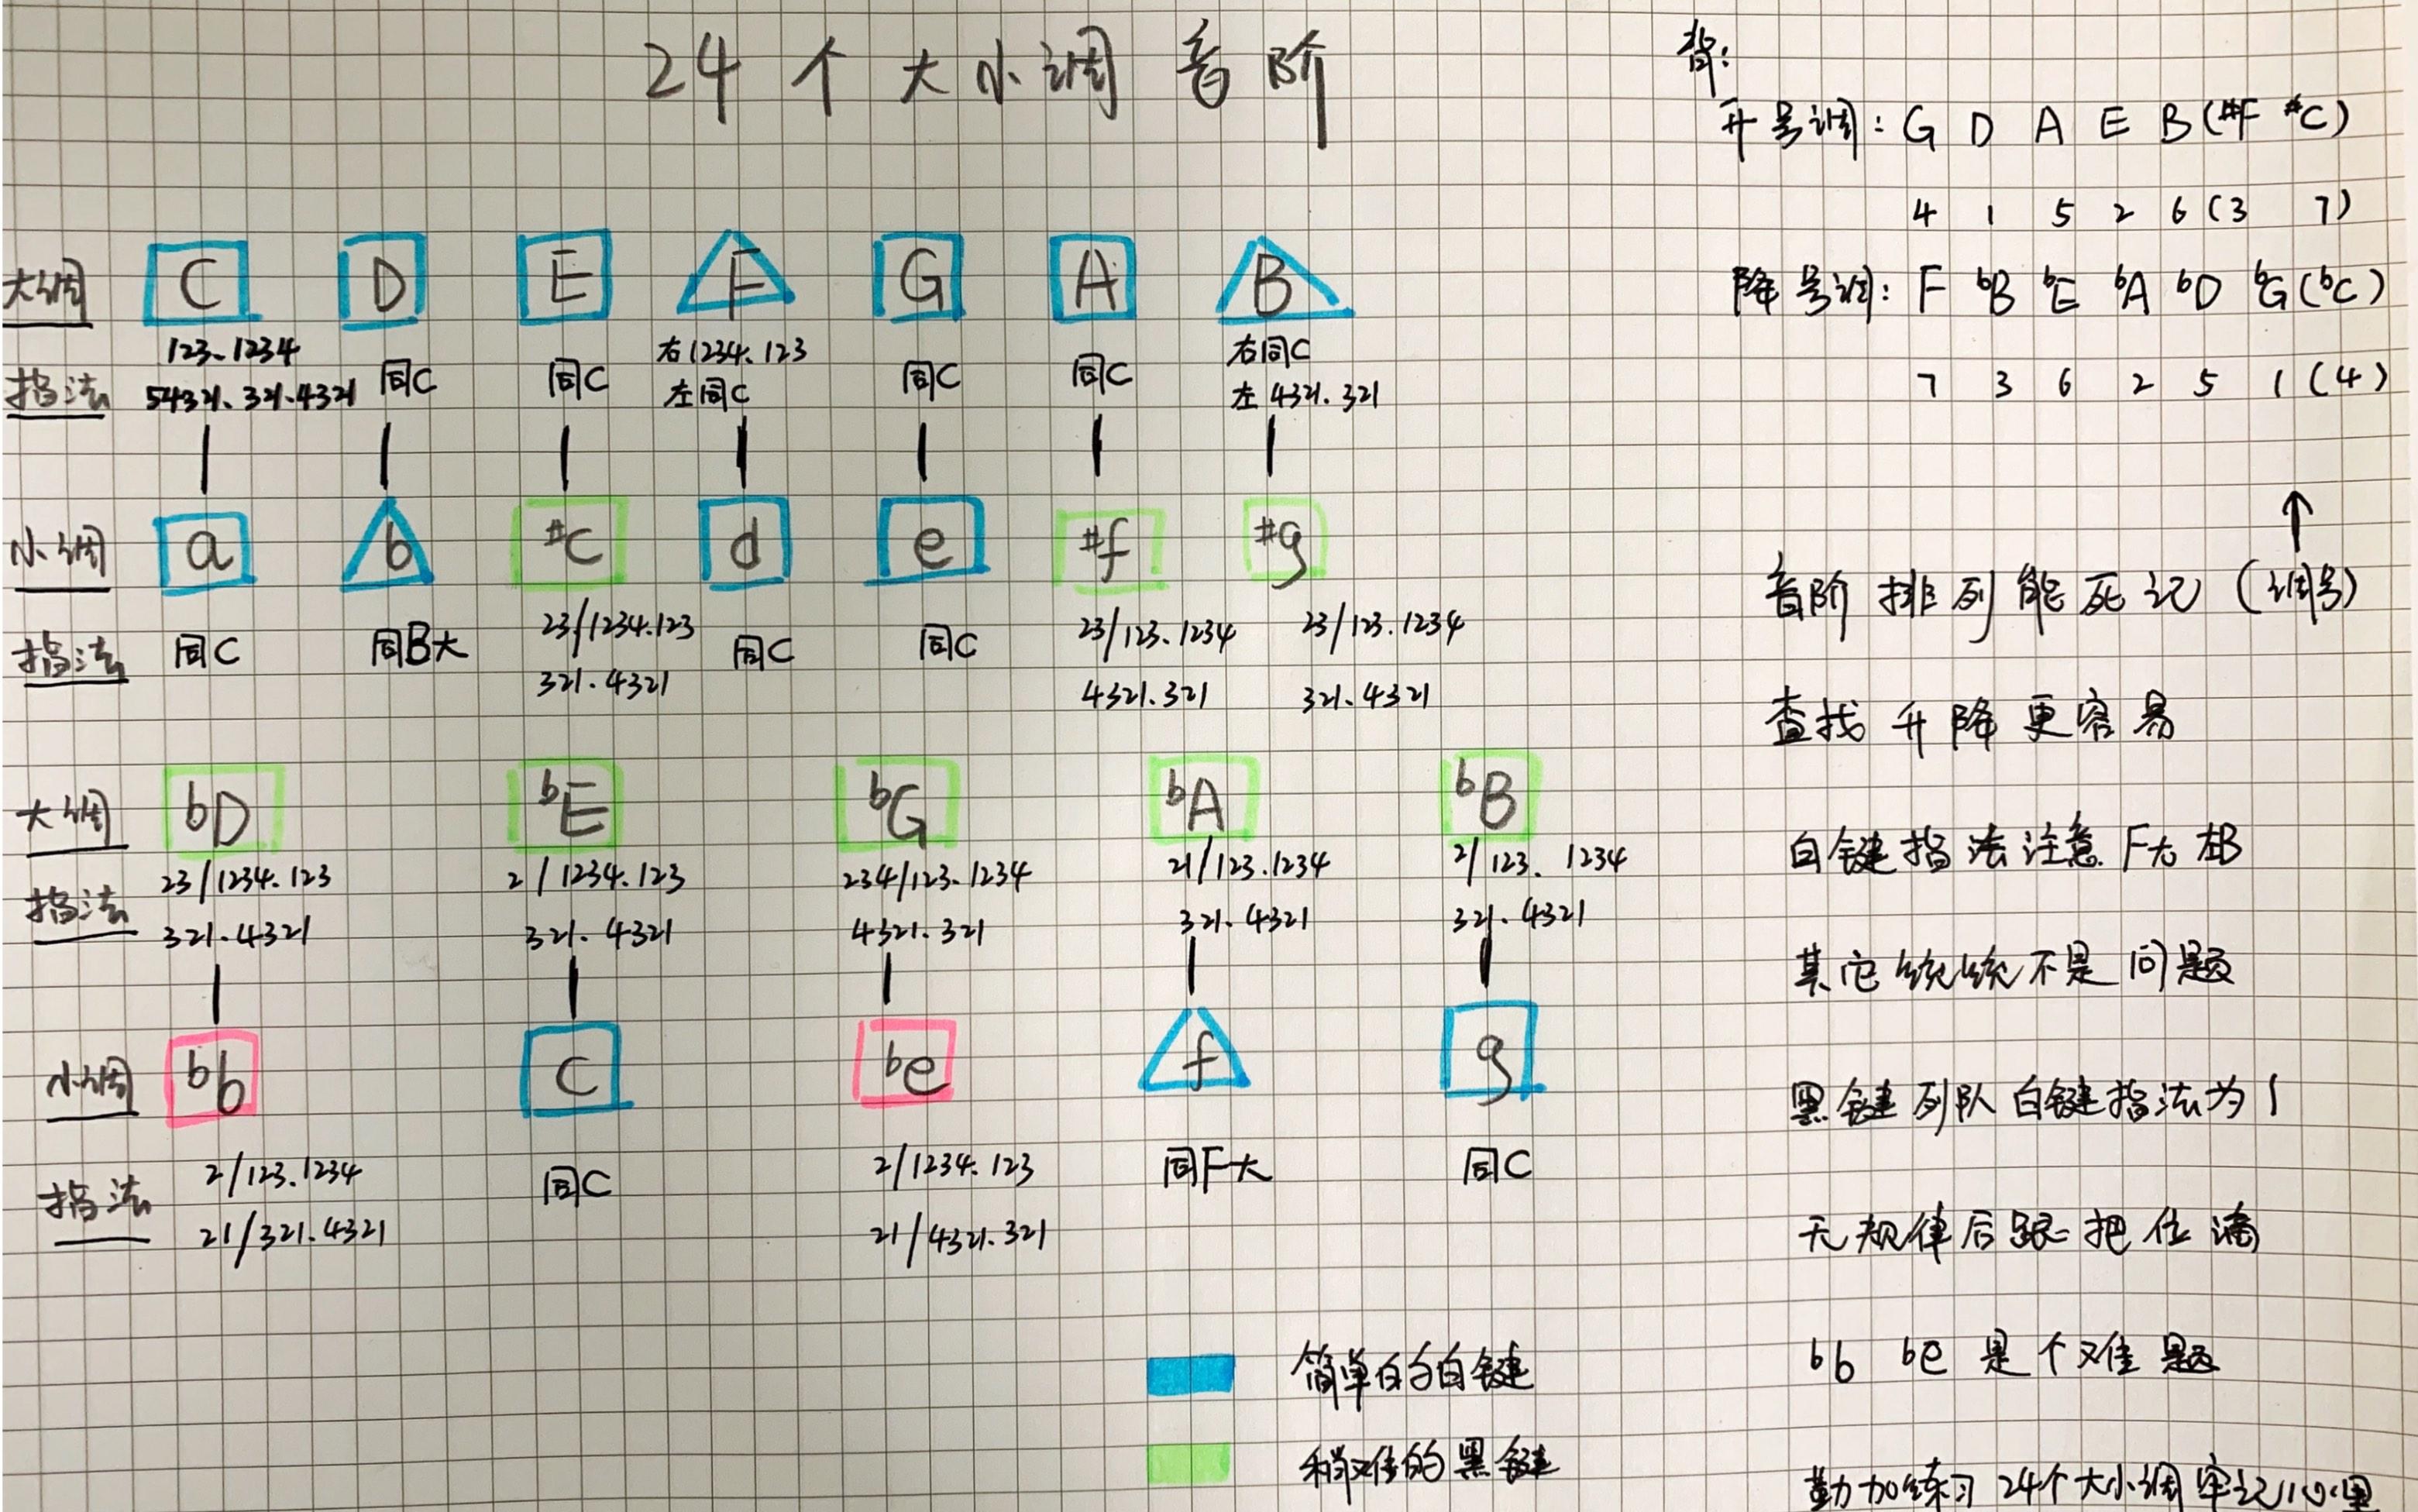 24个大小调音阶
大调 C D E F G A B
指法 123.1234 同C 同C 右1234.123 同C 同C 右同C
54321.321.4321 左同C 左4321.321
小调 a b #c d e #f #g
指法 同C 同B大 23/1234.123 同C 同C 23/123.1234 23/123.1234
321.4321 4321.321 321.4321
大调 bD bE bG bA bB
指法 23/1234.123 2/1234.123 234/123.1234 21/123.1234 2/123.1234
321.4321 321.4321 4321.321 321.4321 321.4321
小调 bb c be f g
指法 2/123.1234 同C 2/1234.123 同F大 同C
21/321.4321 21/4321.321
简单的白键
稍难的黑键
背:
升号调: G D A E B (#F #C)
4 1 5 2 6 (3 7)
降号调: F bB bE bA bD bG (bC)
7 3 6 2 5 1 (4)
↑
音阶排列能死记(调号)
查找升降更容易
白键指法注意F右左B
其它统统不是问题
黑键列队白键指法为1
无规律后跟一把位满
bb be 是个难题
勤加练习24个大小调牢记心里